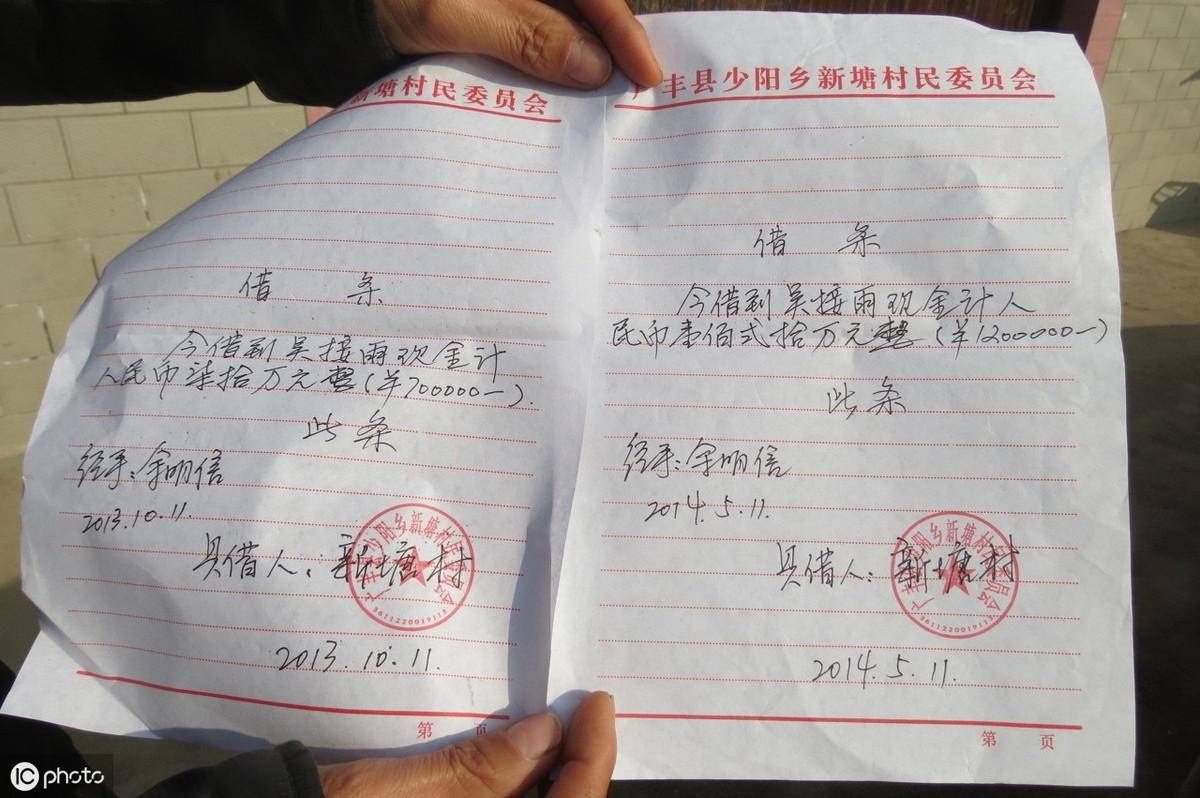 塘村民委员会
借 条
今借到吴接雨现金计
人民币柒拾万元整(￥700000—).
此条
经手:余明信
2013.10.11.
具借人:新塘村
广丰县少阳乡新塘村民委员会
3611220019113
2013.10.11.
第 页
丰县少阳乡新塘村民委员会
借 条
今借到吴接雨现金计人
民币壹佰弍拾万元整(￥1200000—)
此条
经手:余明信
2014.5.11.
具借人:新塘村
广丰县少阳乡新塘村民委员会
3611220019113
2014.5.11.
第 页
IC photo